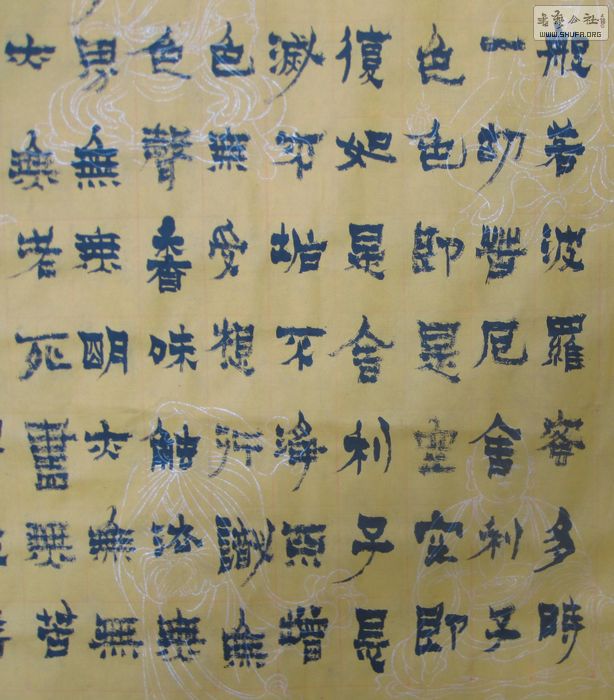 般若波羅密多時
一切苦厄舍利子
色色即是空空即
復如是舍利子是
滅不垢不淨不增
色無受想行識無
色聲香味觸法無
界無無明亦無無
亦無老死盡無苦
書藝公社
WWW.SHUFA.ORG